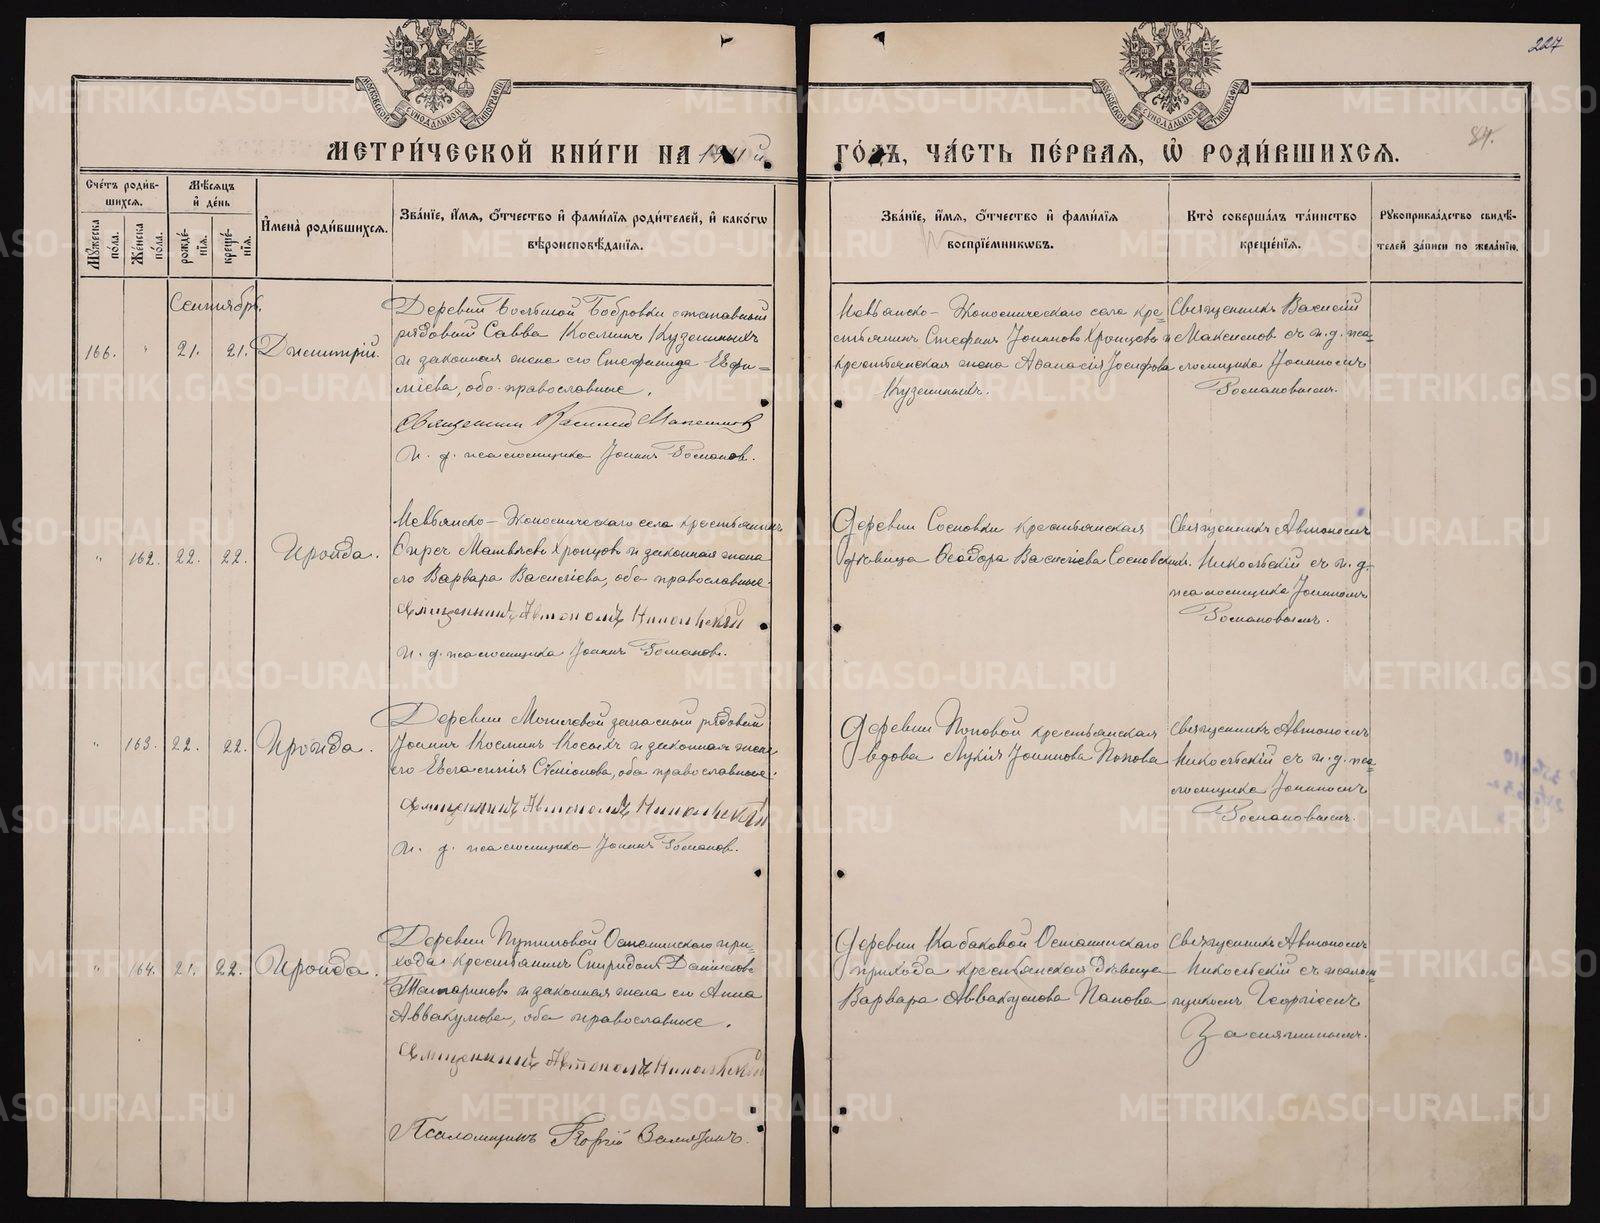 227
84.
МОСКОВСКОЙ СУНОДАЛЬНОЙ ТИПОГРАФІИ
МОСКОВСКОЙ СУНОДАЛЬНОЙ ТИПОГРАФІИ
МЕТРИ́ЧЕСКОЙ КНИ́ГИ НА 1911й ГО́ДЪ, ЧА́СТЬ ПЕ́РВАЯ, Ѽ РОДИ́ВШИХСЯ.
Сче́тъ роди́в-
шихся.
Мѣ́сяцъ
и҆ де́нь
Мꙋ́жеска
по́ла.
Же́нска
по́ла.
рожде́-
нїя.
креще́-
нїя.
И҆мена̀ роди́вшихся.
Зва́нїе, и҆́мя, ѻ҆́тчество и҆ фами́лїя роди́телей, и҆ како́гѡ
вѣроисповѣ́данїя.
Зва́нїе, и҆́мя, ѻ҆́тчество и҆ фами́лїя
воспрїе́мникѡвъ.
Кто̀ соверша́лъ та́инство
креще́нїя.
Рꙋкоприкла́дство свидѣ́-
телей за́писи по жела́нїю.
Сентябрь.
166. " 21. 21. Димитрій.
Деревни Большой Бобровки отставной
рядовой Савва Козминъ Куземиныхъ
и законная жена его Стефанида Евфи=
міева, оба православные.
Священникъ Василій Максимовъ
И. д. псаломщика Іоаннъ Романов.
Невьянско-Экономическаго села кре=
стьянинъ Стефанъ Іоанновъ Хропцовъ и
крестьянская жена Аѳанасія Іосифова
Куземиныхъ.
Священникъ Василій
Максимов съ и. д. пса=
ломщика Іоанномъ
Романовымъ.
" 162. 22. 22. Ироида.
Невьянско-Экономическаго села крестьянинъ
Матвѣевъ Хропцовъ и законная жена
его Варвара Василіева, оба православные.
Священникъ Автономъ Никольскій
И. д. псаломщика Іоаннъ Романов.
Деревни Сосновки крестьянская
дѣвица Ѳеодора Василіева Сосновскихъ.
Священникъ Автономъ
Никольскій съ и. д.
псаломщика Іоанномъ
Романовымъ.
" 163. 22. 22. Ироида.
Деревни Мочиловой запасный рядовой
Іоаннъ Козминъ Косыхъ и законная жена
его Евгламія, оба православные.
Священникъ Автономъ Никольскій
И. д. псаломщика Іоаннъ Романов.
Деревни Поповой крестьянская
вдова Лукія Іоаннова Попова
Священникъ Автономъ
Никольскій съ и. д. пса=
ломщика Іоанномъ
Романовымъ.
" 164. 21. 22. Ироида.
Деревни Путиловой Осташинскаго при=
хода крестьянинъ Спиридонъ Даниловъ
Татариновъ и законная жена его Анна
Аввакумова, оба православные.
Священникъ Автономъ Никольскій
Псаломщикъ Георгій Замятинъ.
Деревни Кабаковой Осташинскаго
прихода крестьянская дѣвица
Варвара Аввакумова Панова
Священникъ Автономъ
Никольскій съ псалом=
щикомъ Георгіемъ
Замятинымъ.
METRIKI.GASO-URAL.RU